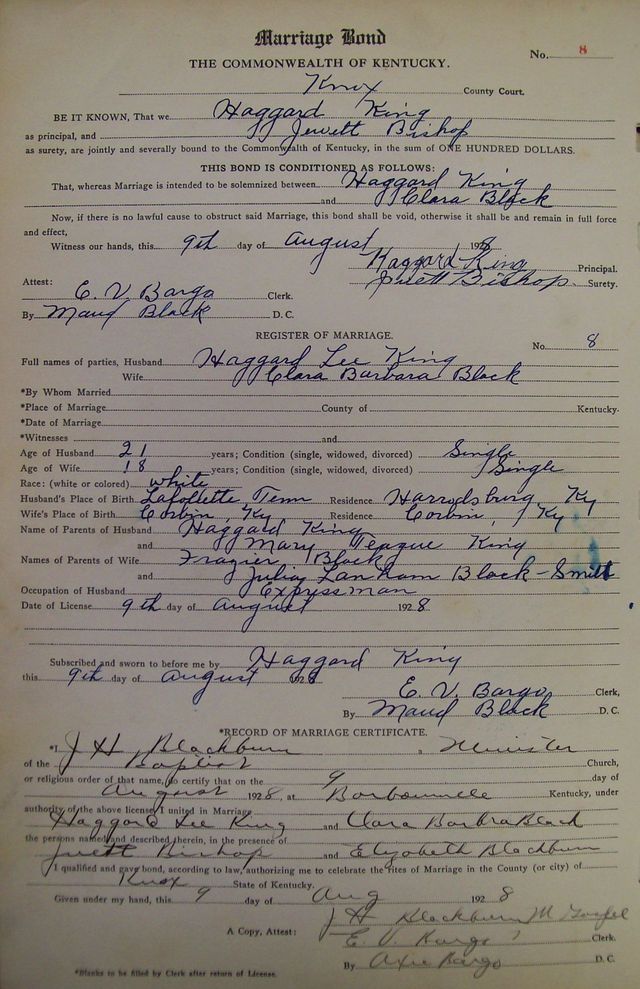 Marriage Bond
No. 8
THE COMMONWEALTH OF KENTUCKY.
Knox County Court.
BE IT KNOWN, That we Haggard King
as principal, and Jewett Bishop
as surety, are jointly and severally bound to the Commonwealth of Kentucky, in the sum of ONE HUNDRED DOLLARS.
THIS BOND IS CONDITIONED AS FOLLOWS:
That, whereas Marriage is intended to be solemnized between Haggard King
and Clara Black
Now, if there is no lawful cause to obstruct said Marriage, this bond shall be void, otherwise it shall be and remain in full force
and effect,
Witness our hands, this 9th day of August 1928
Haggard King Principal.
Attest: Juett Bishop Surety.
E. V. Bargo Clerk.
By Maud Black D. C.
REGISTER OF MARRIAGE.
No. 8
Full names of parties, Husband Haggard Lee King
Wife Clara Barbara Black
*By Whom Married
*Place of Marriage County of Kentucky.
*Date of Marriage
*Witnesses and
Age of Husband 21 years; Condition (single, widowed, divorced) Single
Age of Wife 18 years; Condition (single, widowed, divorced) Single
Race: (white or colored) white
Husband's Place of Birth Lafollette Tenn Residence Harrodsburg Ky
Wife's Place of Birth Corbin, Ky Residence Corbin, Ky
Name of Parents of Husband Haggard King
and Mary Teague King
Names of Parents of Wife Frazier Black
and Julia Lanham Black - Smith
Occupation of Husband Expressman
Date of License 9th day of August 1928
Subscribed and sworn to before me by Haggard King
this 9th day of August 1928
E. V. Bargo Clerk,
By Maud Black D. C.
*RECORD OF MARRIAGE CERTIFICATE.
*I J H Blackburn, Minister
of the Baptist Church,
or religious order of that name, do certify that on the 9 day of
August 1928, at Barbourville Kentucky, under
authority of the above license, I united in Marriage
Haggard Lee King and Clara Barbra Black
the persons named and described therein, in the presence of
Juett Bishop and Elizabeth Blackburn
I qualified and gave bond, according to law, authorizing me to celebrate the rites of Marriage in the County (or city) of
Knox State of Kentucky.
Given under my hand, this 9 day of Aug 1928
J H Blackburn M Gospel
A Copy, Attest: E. V. Bargo Clerk.
By Axie Bargo D. C.
*Blanks to be filled by Clerk after return of License.